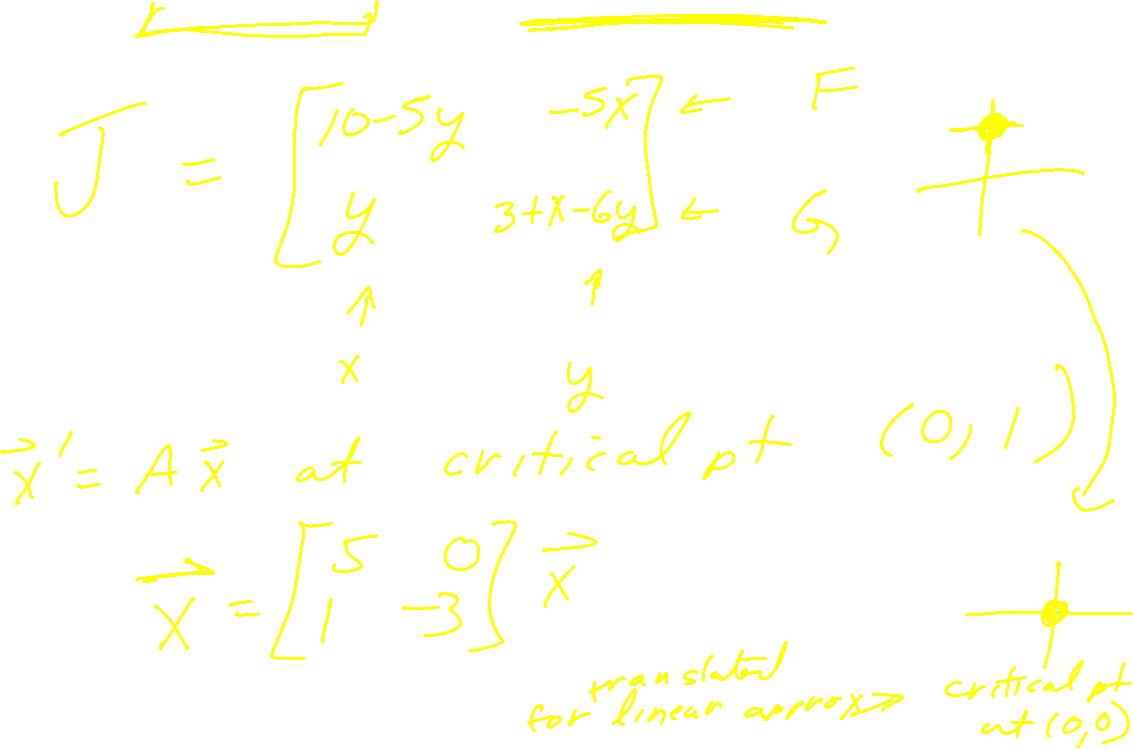 J = [10-5y -5x] ← F
[y 3+x-6y] ← G
↑ ↑
x y
x⃗' = A x⃗ at critical pt (0, 1)
x⃗ = [5 0] x⃗
[1 -3]
translated
for linear approx
critical pt
at (0,0)